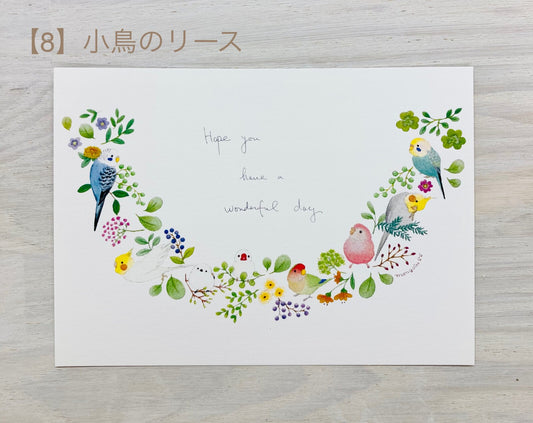 【8】小鳥のリース
Hope you
have a
wonderful day.